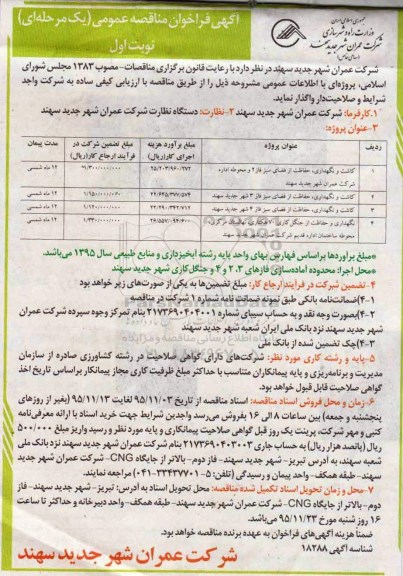 آگهی فراخوان مناقصه عمومی (یک مرحله‌ای)
نوبت اول
جمهوری اسلامی ایران
وزارت راه و شهرسازی
شرکت عمران شهر جدید سهند
شرکت عمران شهر جدید سهند در نظر دارد با رعایت قانون برگزاری مناقصات- مصوب ۱۳۸۳ مجلس شورای
اسلامی، پروژه‌ای با اطلاعات عمومی مشروحه ذیل را از طریق مناقصه با ارزیابی کیفی ساده به شرکت واجد
شرایط و صلاحیت‌دار واگذار نماید.
۱.کارفرما: شرکت عمران شهر جدید سهند ۲-نظارت: دستگاه نظارت شرکت عمران شهر جدید سهند
۳-عنوان پروژه:
ردیف عنوان پروژه مبلغ برآورد هزینه اجرای کار(ریال) مبلغ تضمین شرکت در فرآیند ارجاع کار(ریال) مدت پیمان
۱ کاشت و نگهداری، حفاظت از فضای سبز فاز۲ و محوطه اداره شرکت عمران شهر جدید سهند ۱۲ ماه شمسی
۲ کاشت و نگهداری، حفاظت از فضای سبز فاز ۳ شهر جدید سهند ۱۲ ماه شمسی
۳ کاشت و نگهداری، حفاظت از فضای سبز فاز ۴ شهر جدید سهند ۱۲ ماه شمسی
۴ نگهداری و حفاظت از جنگل کاری محوطه ساختمان اداره قدیم شرکت عمران شهر جدید سهند ۱۲ ماه شمسی
*مبلغ برآوردها براساس فهارس بهای واحد پایه رشته آبخیزداری و منابع طبیعی سال ۱۳۹۵ می‌باشد.
*محل اجرا: محدوده آماده‌سازی فازهای ۲،۳ و ۴ و جنگل‌کاری شهر جدید سهند
۴-تضمین شرکت در فرآیند ارجاع کار: مبلغ تضمین‌ها به یکی از صورت‌های زیر خواهد بود
۴-۱)ضمانت‌نامه بانکی طبق نمونه ضمانت نامه شماره ۱ شرکت در مناقصه
۴-۲)بصورت وجه نقد و به حساب سیبای شماره ۲۱۷۳۶۹۰۴۰۴۰۰۱ بنام تمرکز وجوه سپرده شرکت عمران
شهر جدید سهند نزد بانک ملی ایران شعبه شهر جدید سهند
۴-۳)چک تضمین شده از بانک ملی
۵-پایه و رشته کاری مورد نظر: شرکت‌های دارای گواهی صلاحیت در رشته کشاورزی صادره از سازمان
مدیریت و برنامه‌ریزی و پایه پیمانکاران متناسب با حداکثر مبلغ ظرفیت کاری مجاز پیمانکار براساس تاریخ اخذ
گواهی صلاحیت قابل قبول خواهد بود.
۶-زمان و محل فروش اسناد مناقصه: اسناد مناقصه از تاریخ ۹۵/۱۱/۰۳ لغایت ۹۵/۱۱/۱۳ (بغیر از روزهای
پنجشنبه و جمعه) بین ساعات ۸ الی ۱۶ بفروش می‌رسد واجدین شرایط جهت خرید اسناد با ارائه معرفی‌نامه
کتبی و مهر شرکت، پرینت یک روز قبل گواهی صلاحیت پیمانکاری و پایه مورد نظر و رسید واریز مبلغ ۵۰۰/۰۰۰
ریال (پانصد هزار ریال) به حساب جاری ۲۱۷۳۶۹۰۴۰۳۰۰۳ بنام شرکت عمران شهر جدید سهند نزد بانک ملی
شعبه سهند، به آدرس تبریز- شهر جدید سهند- فاز دوم- بالاتر از جایگاه CNG- شرکت عمران شهر جدید
سهند- طبقه همکف- واحد پیمان و رسیدگی (تلفن: ۵-۳۳۴۳۷۷۰۱-۰۴۱) مراجعه نمایند.
۷-محل و زمان تحویل اسناد تکمیل شده مناقصه: محل تحویل اسناد به آدرس: تبریز- شهر جدید سهند- فاز
دوم- بالاتر از جایگاه CNG- شرکت عمران شهر جدید سهند- طبقه همکف- واحد دبیرخانه و حداکثر تا ساعت
۱۶ روز شنبه مورخ ۹۵/۱۱/۲۳ می‌باشد.
ضمنا هزینه آگهی‌های فراخوان به عهده برنده مناقصه خواهد بود.
شناسه آگهی ۱۸۲۸۸
شرکت عمران شهر جدید سهند